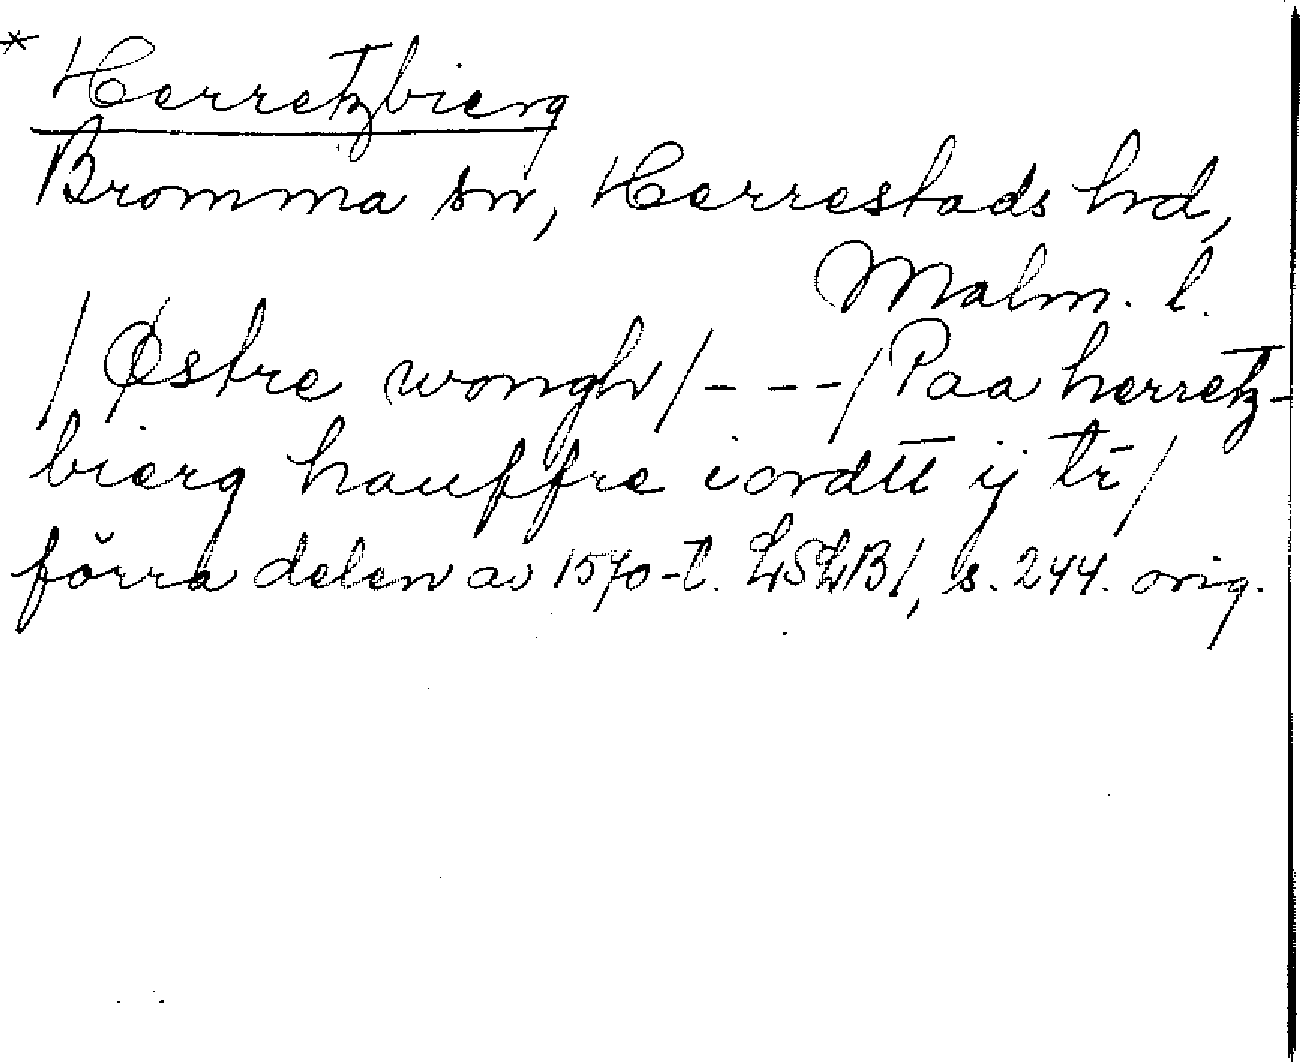 * Herretzbierg
Bromma sn, Herrestads hd,
Malm. l.
/Østre wongh/ - - - /Paa herretz-
bierg hauffre iordtt ij tr/
förra delen av 1570-t. LSLB1, s. 244. orig.